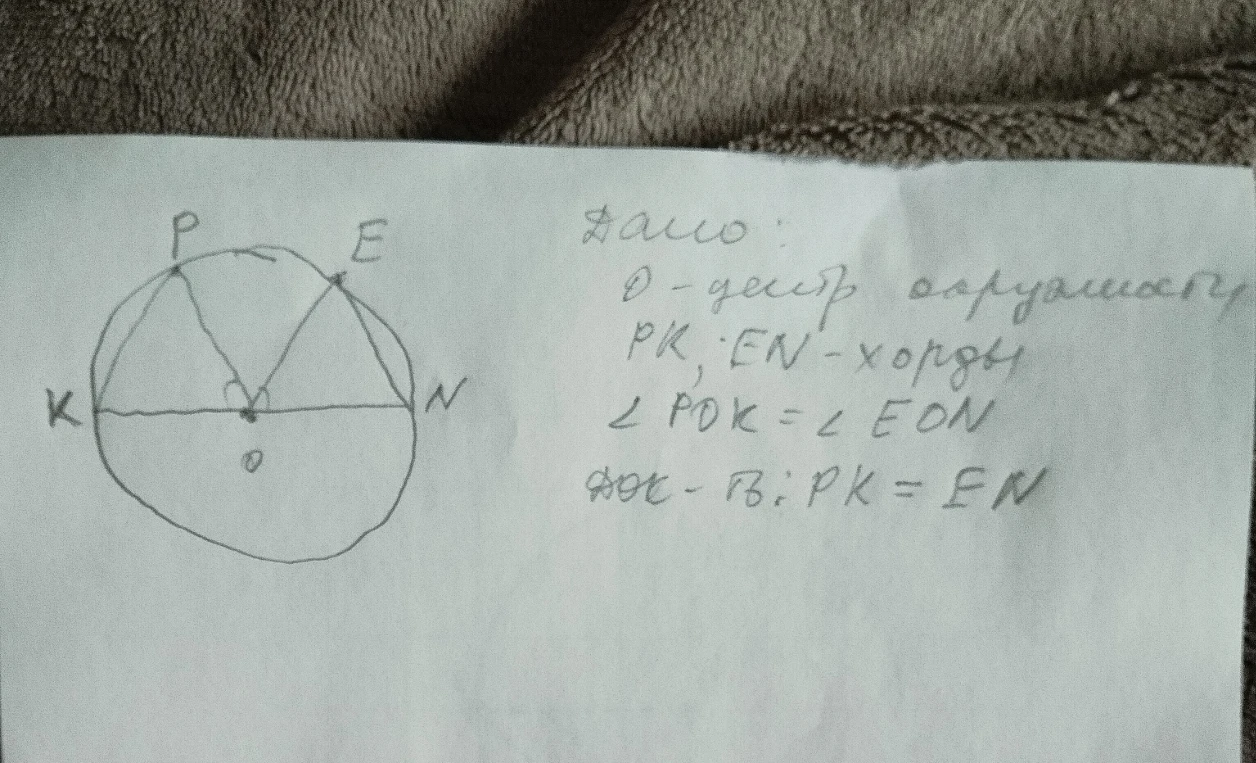 P
E
K
N
O
Дано:
O - центр окружности
PK, EN - хорды
∠ POK = ∠ EON
Док - ть: PK = EN